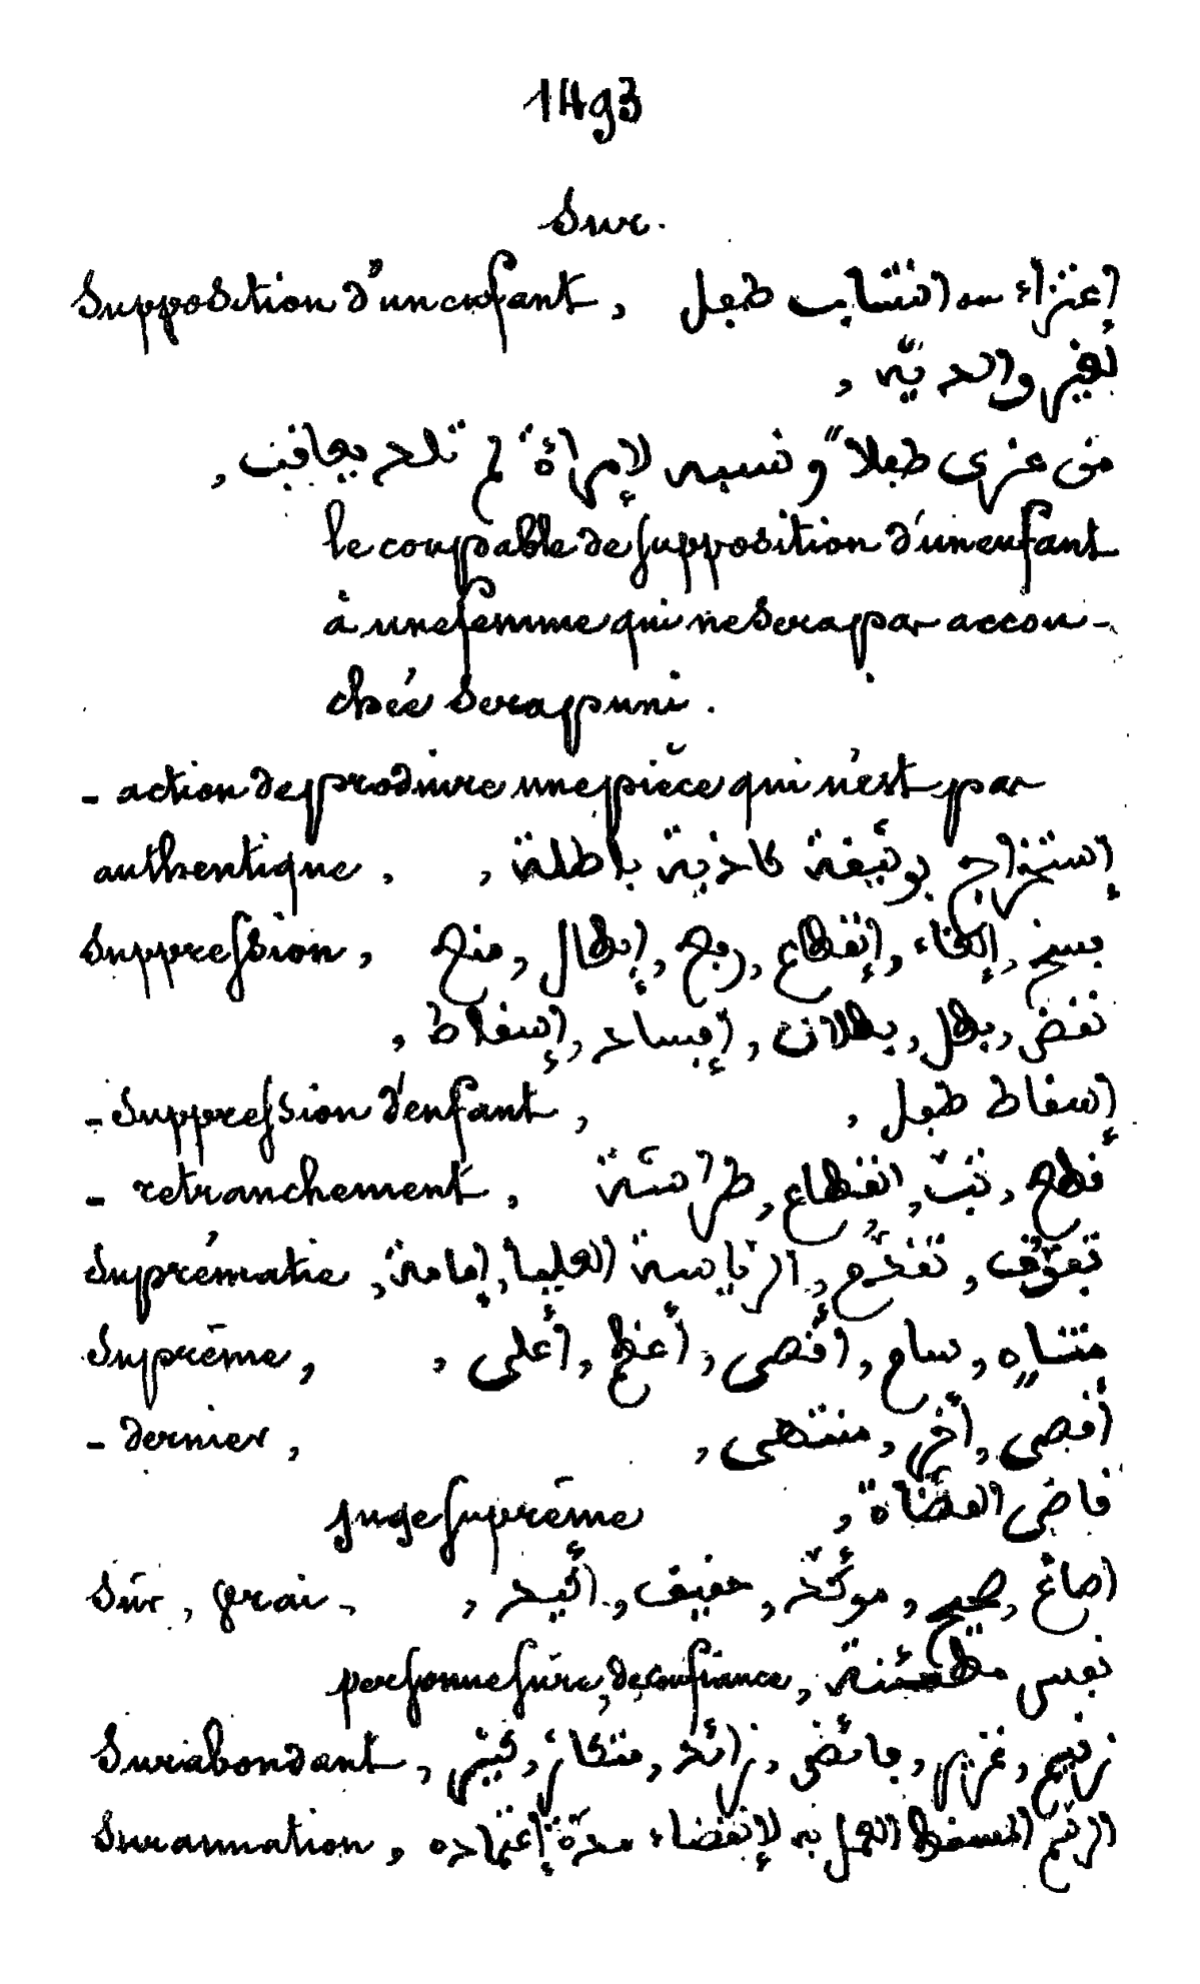 1493
Sur.
Supposition d'un enfant, إعتزاء – انتساب طفل
لغير والديّه,
من عزى طفلاً و نسبه لإمرأة لم تلد يعاقب,
le coupable de supposition d'un enfant
à une femme qui ne sera pas accou-
chée sera puni.
- action de produire une pièce qui n'est pas
authentique, إستخراج بوثيقة كاذبة باطلة,
Suppression, فسخ, إلغاء, إنقطاع, رفع, إبطال, منع
نقض, بطل, بطلان, إفساد, إسقاط,
- Suppression d'enfant, إسقاط طفل,
- retranchement, قطع, انقطاع,
Suprématie, تفوّق, تقدّم, الرياسة العليا, إمامة,
Suprême, متناهٍ, سام, أقصى, أعظم, أعلى,
- dernier, أقصى, أخر, منتهى,
juge suprême قاضى القضاة,
Sûr, vrai, صحيح, موكّد, حقيق, أكيد,
personne sûre, de confiance, نفس مطمئنة
Surabondant, غزير, فائض, زائد, متكاثر, كثير,
Surannation, المسقط العمل به لإنقضاء مدّة إعتماده